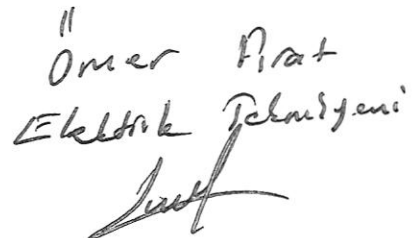 Ömer Fırat
Elektrik Teknisyeni